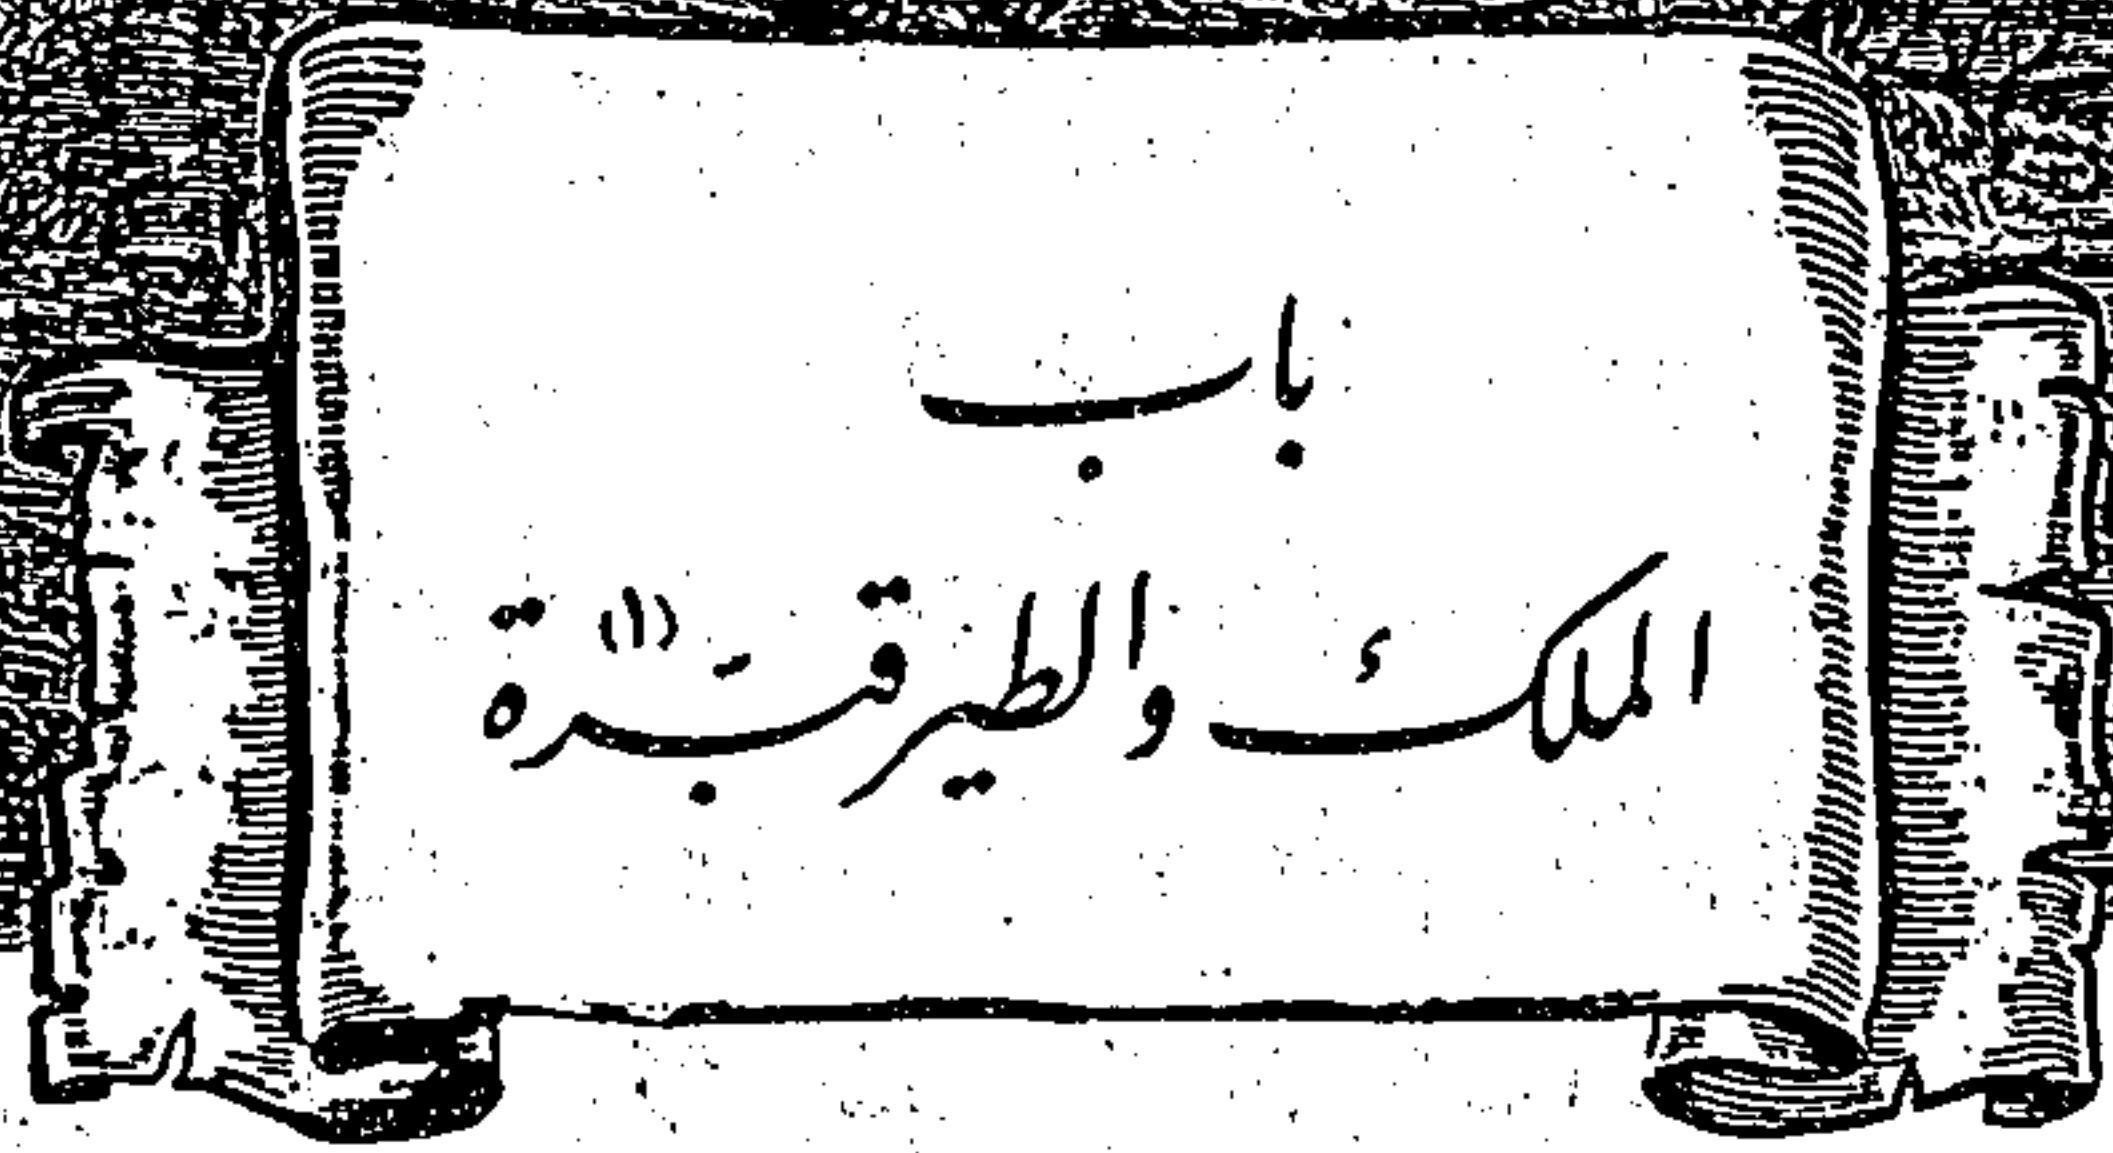 باب
الملك والطير قبرة (١)